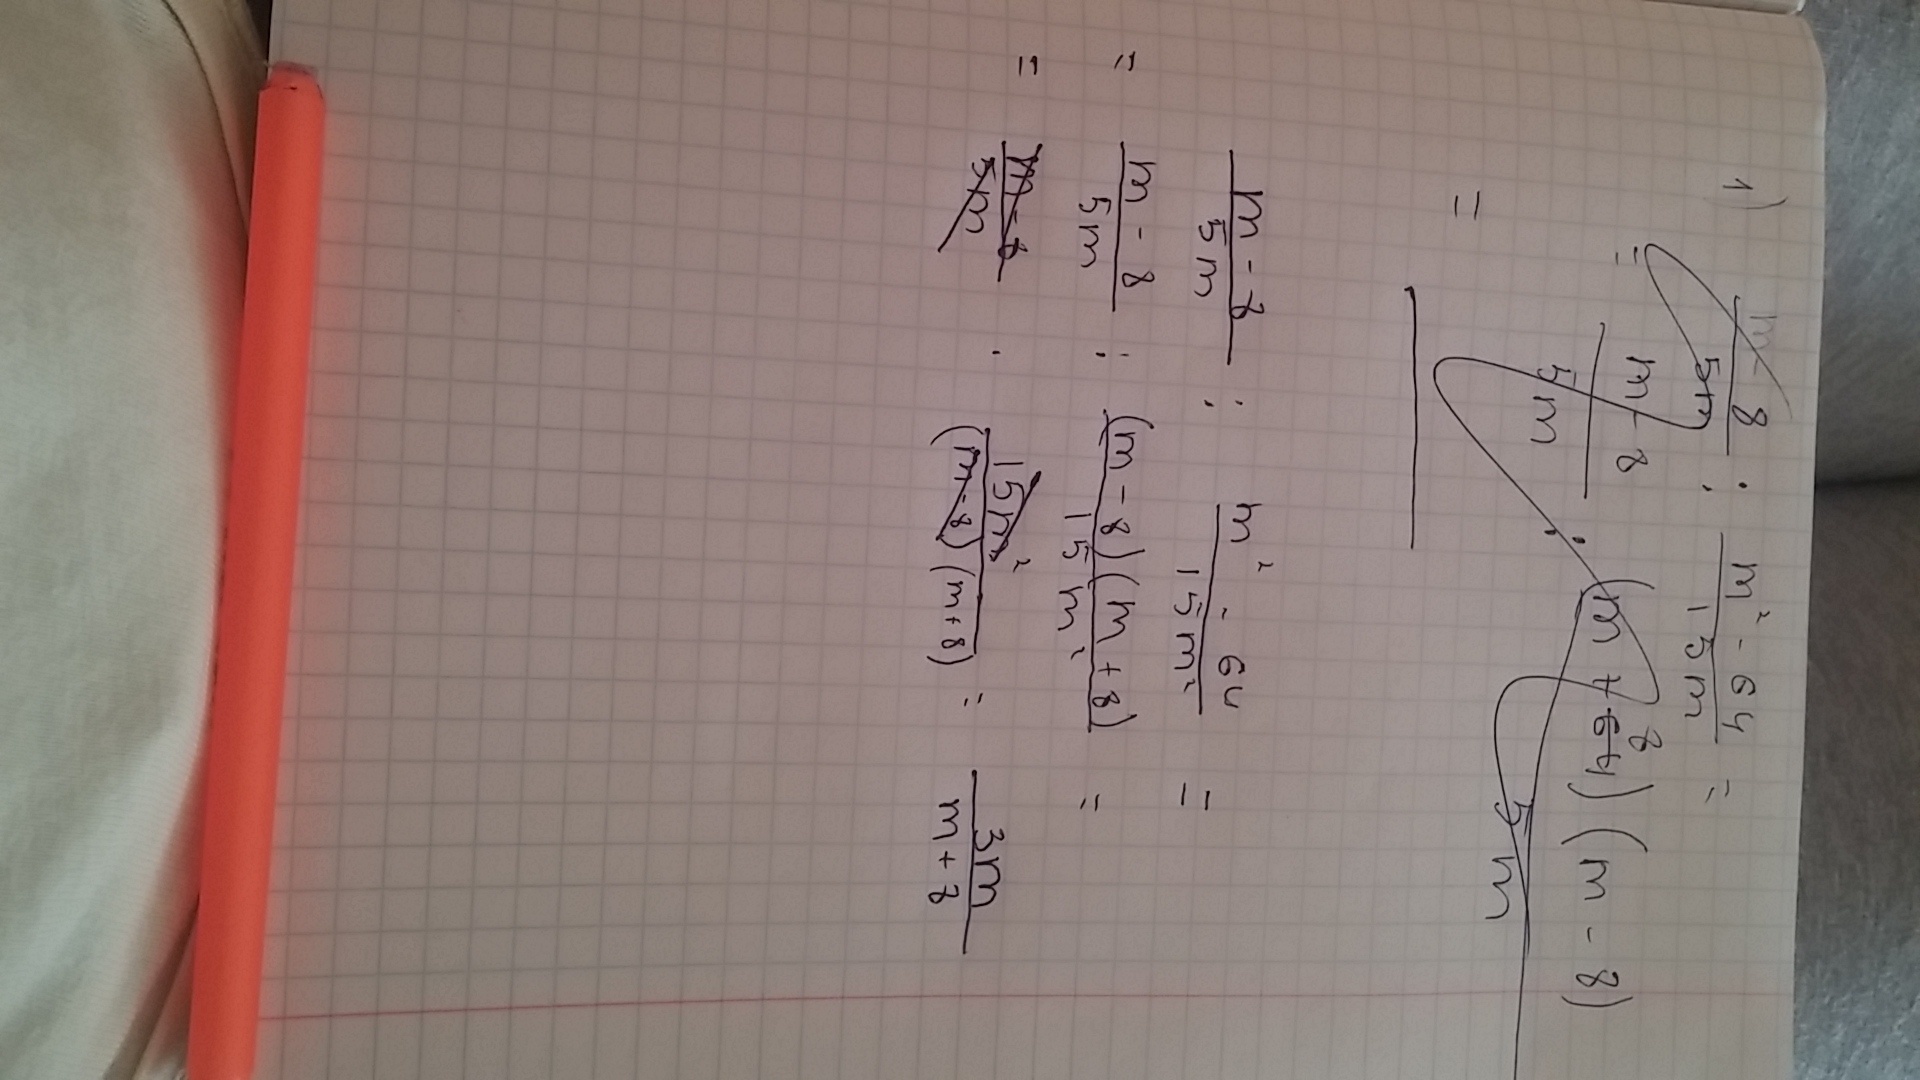 1) m-8/5m : m²-64/15m =
= m-8/5m : (m+648)(m-8)/5m
=
m-8/5m : m²-64/15m² =
= m-8/5m : (m-8)(m+8)/15m² =
= m-8/5m · 15m²/(m-8)(m+8) = 3m/m+8